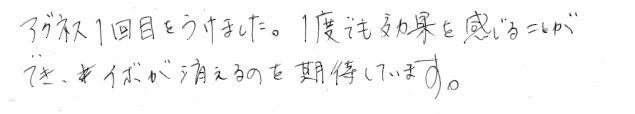 アグネス1回目をうけました。1度でも効果を感じることが
でき、イボが消えるのを期待しています。